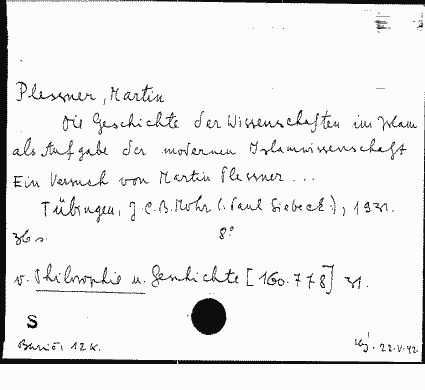 Plessner, Martin
Die Geschichte der Wissenschaften im Islam
als Aufgabe der modernen Islamwissenschaft
Ein Versuch von Martin Plessner ...
Tübingen, J.C.B. Mohr (Paul Siebeck), 1931.
36 s. 8°
v. Philosophie u. Geschichte [160.778] 31.
S
12 K.
22.V.42